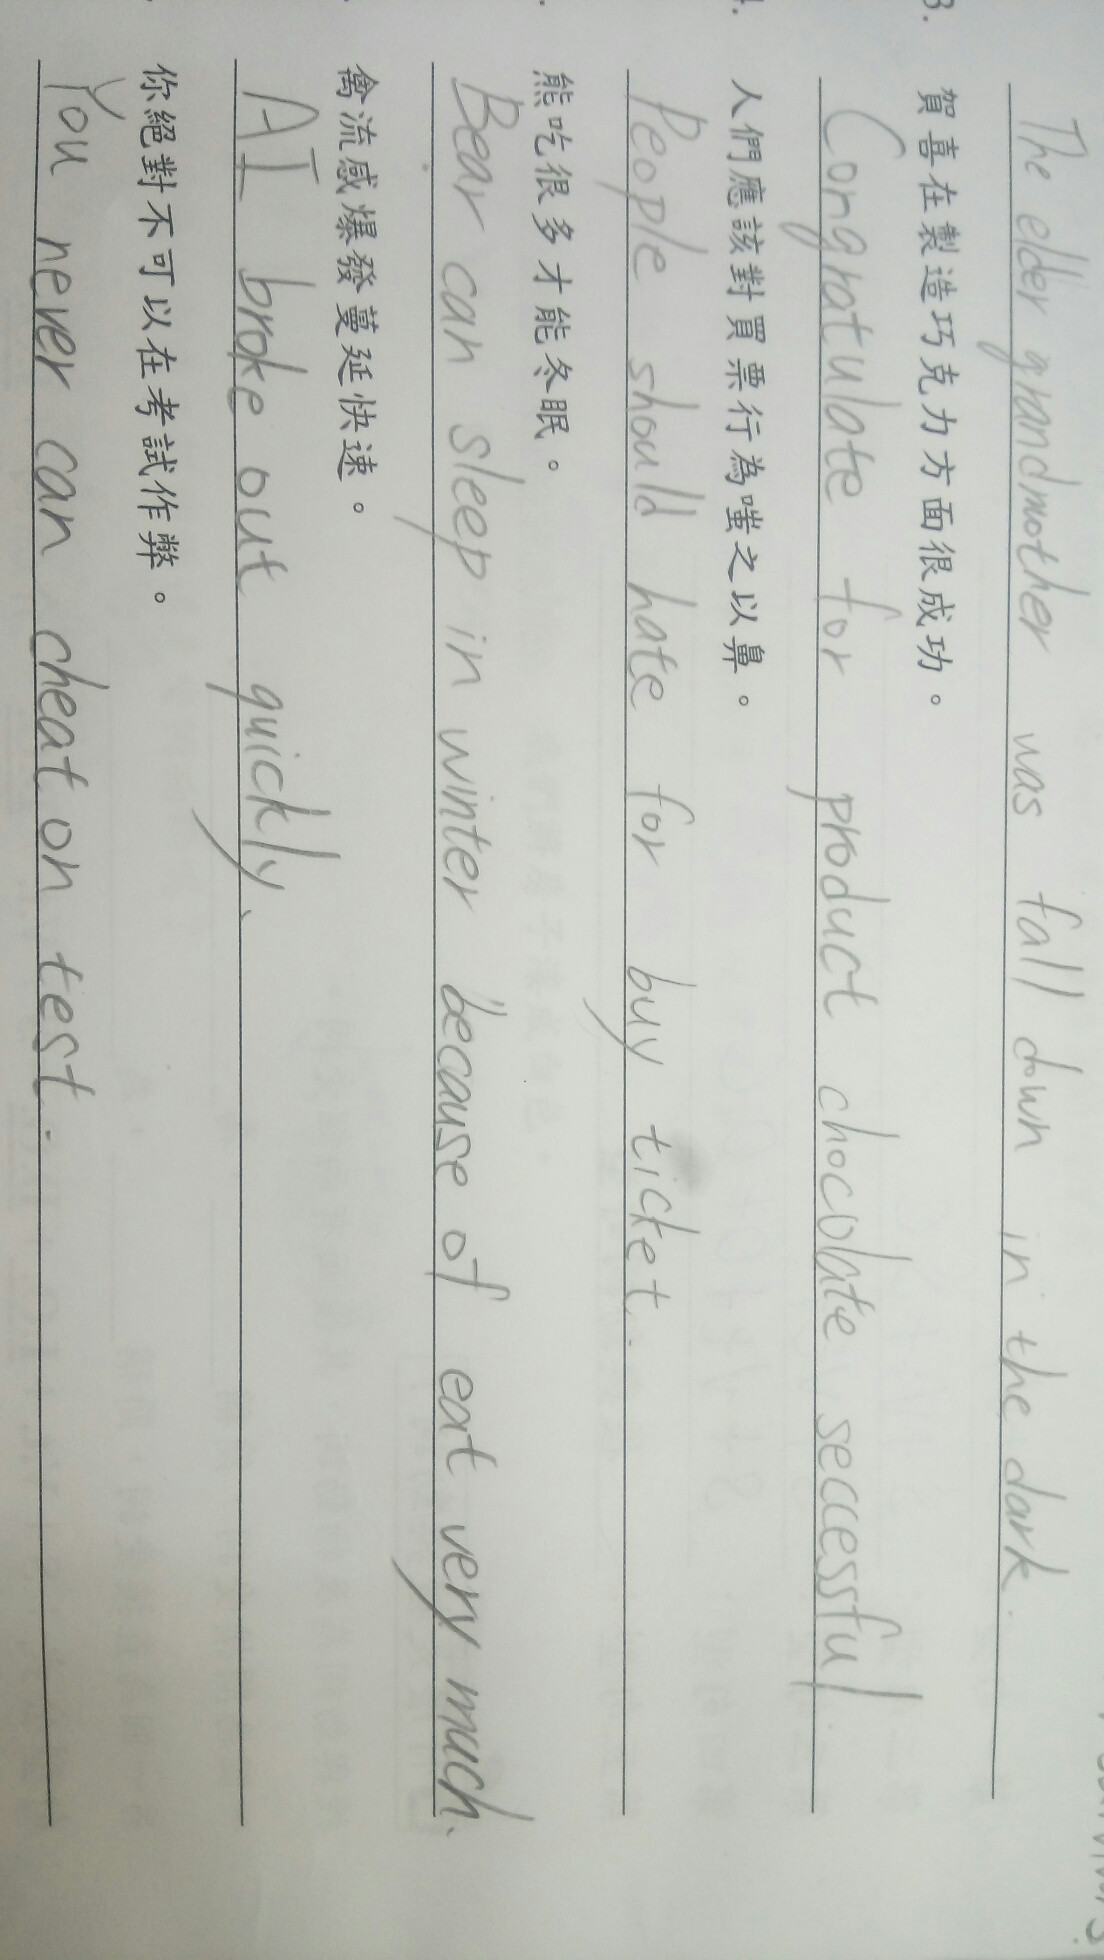 The elder grandmother was fall down in the dark.
3. 賀喜在製造巧克力方面很成功。
Congratulate for product chocolate seccessful
人們應該對買票行為嗤之以鼻。
People should hate for buy ticket.
熊吃很多才能冬眠。
Bear can sleep in winter because of eat very much.
禽流感爆發蔓延快速。
AI broke out quickly.
你絕對不可以在考試作弊。
You never can cheat on test.